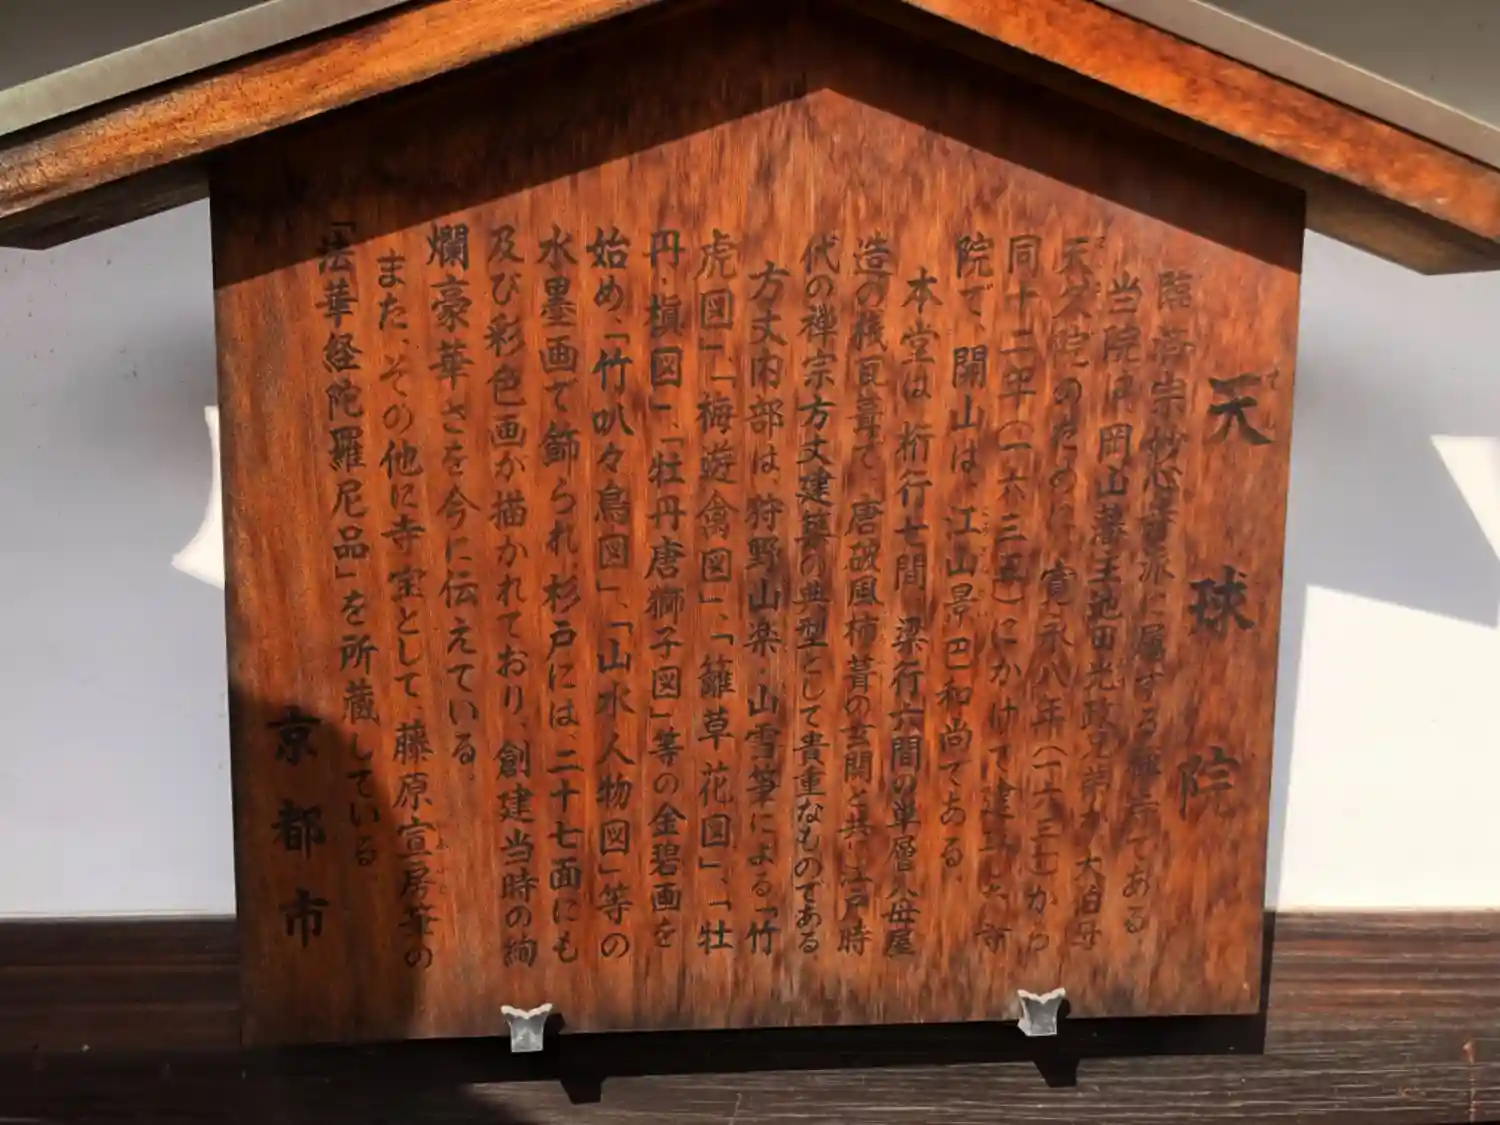 天球院
臨済宗妙心寺派に属する禅寺である。
当院は岡山藩主池田光政兄弟が、大伯母
天久院のために、寛永八年(一六三一)から
同十二年(一六三五)にかけて建立した
院で、開山は、江山景巴和尚である。
本堂は桁行七間、梁行六間の単層入母屋
造の桟瓦葺で、唐破風柿葺の玄関と共に江戸時
代の禅宗方丈建築の典型として貴重なものである。
方丈内部は、狩野山楽・山雪筆による「竹
虎図」、「梅遊禽図」、「籬草花図」、「牡
丹・槇図」、「牡丹唐獅子図」等の金碧画を
始め、「竹叭々鳥図」、「山水人物図」等の
水墨画で飾られ、杉戸には、二十七面にも
及び彩色画が描かれており、創建当時の絢
爛豪華さを今に伝えている。
また、その他に寺宝として、藤原宣房筆の
「法華経陀羅尼品」を所蔵している。
京都市